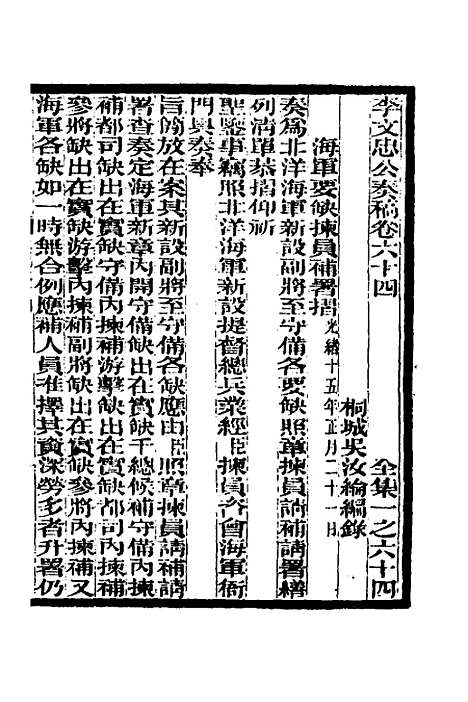 李文忠公奏稿卷六十四　全集一之六十四
桐城吳汝綸編錄
海軍要缺揀員補署摺光緒十五年正月二十一日
奏爲北洋海軍新設副將至守備各要缺照章揀員請補請署繕
列清單恭摺仰祈
聖鑒事竊照北洋海軍新設提督總兵業經臣揀員咨會海軍衙
門具奏奉
旨簡放在案其新設副將至守備各缺應由臣照章揀員請補請
署查奏定海軍新章內開守備缺出在實缺千總候補守備內揀
補都司缺出在實缺守備內揀補游擊缺出在實缺都司內揀補
參將缺出在實缺游擊內揀補副將缺出在實缺參將內揀補又
海軍各缺如一時無合例應補人員准擇其資深勞多者升署仍